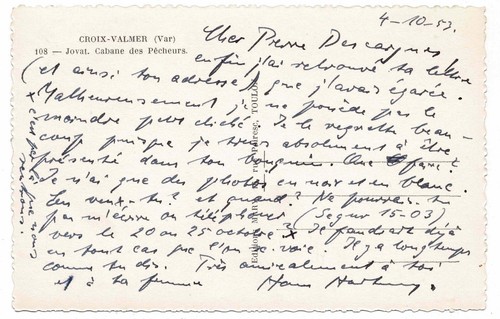 CROIX-VALMER (Var)
108 — Jovat. Cabane des Pêcheurs.
4-10-53.
Cher Pierre Descargues
enfin j'ai retrouvé ta lettre
(et ainsi ton adresse) que j'avais égarée.
Malheureusement je ne possède pas le
moindre petit cliché. Je le regrette beau-
coup puisque je tiens absolument à être
présenté dans ton bouquin. Que faire?
Je n'ai que des photos en noir et en blanc.
En veux-tu? et quand? Ne pourrais-tu
pas m'écrire ou téléphoner (Segur 15-03)
vers le 20 ou 25 octobre x Il faudrait déjà
en tout cas que l'on se voie. Il y a longtemps
comme tu dis. Très amicalement à toi
et à ta femme Hans Hartung
x c'est que nous
rentrons.
TOULON